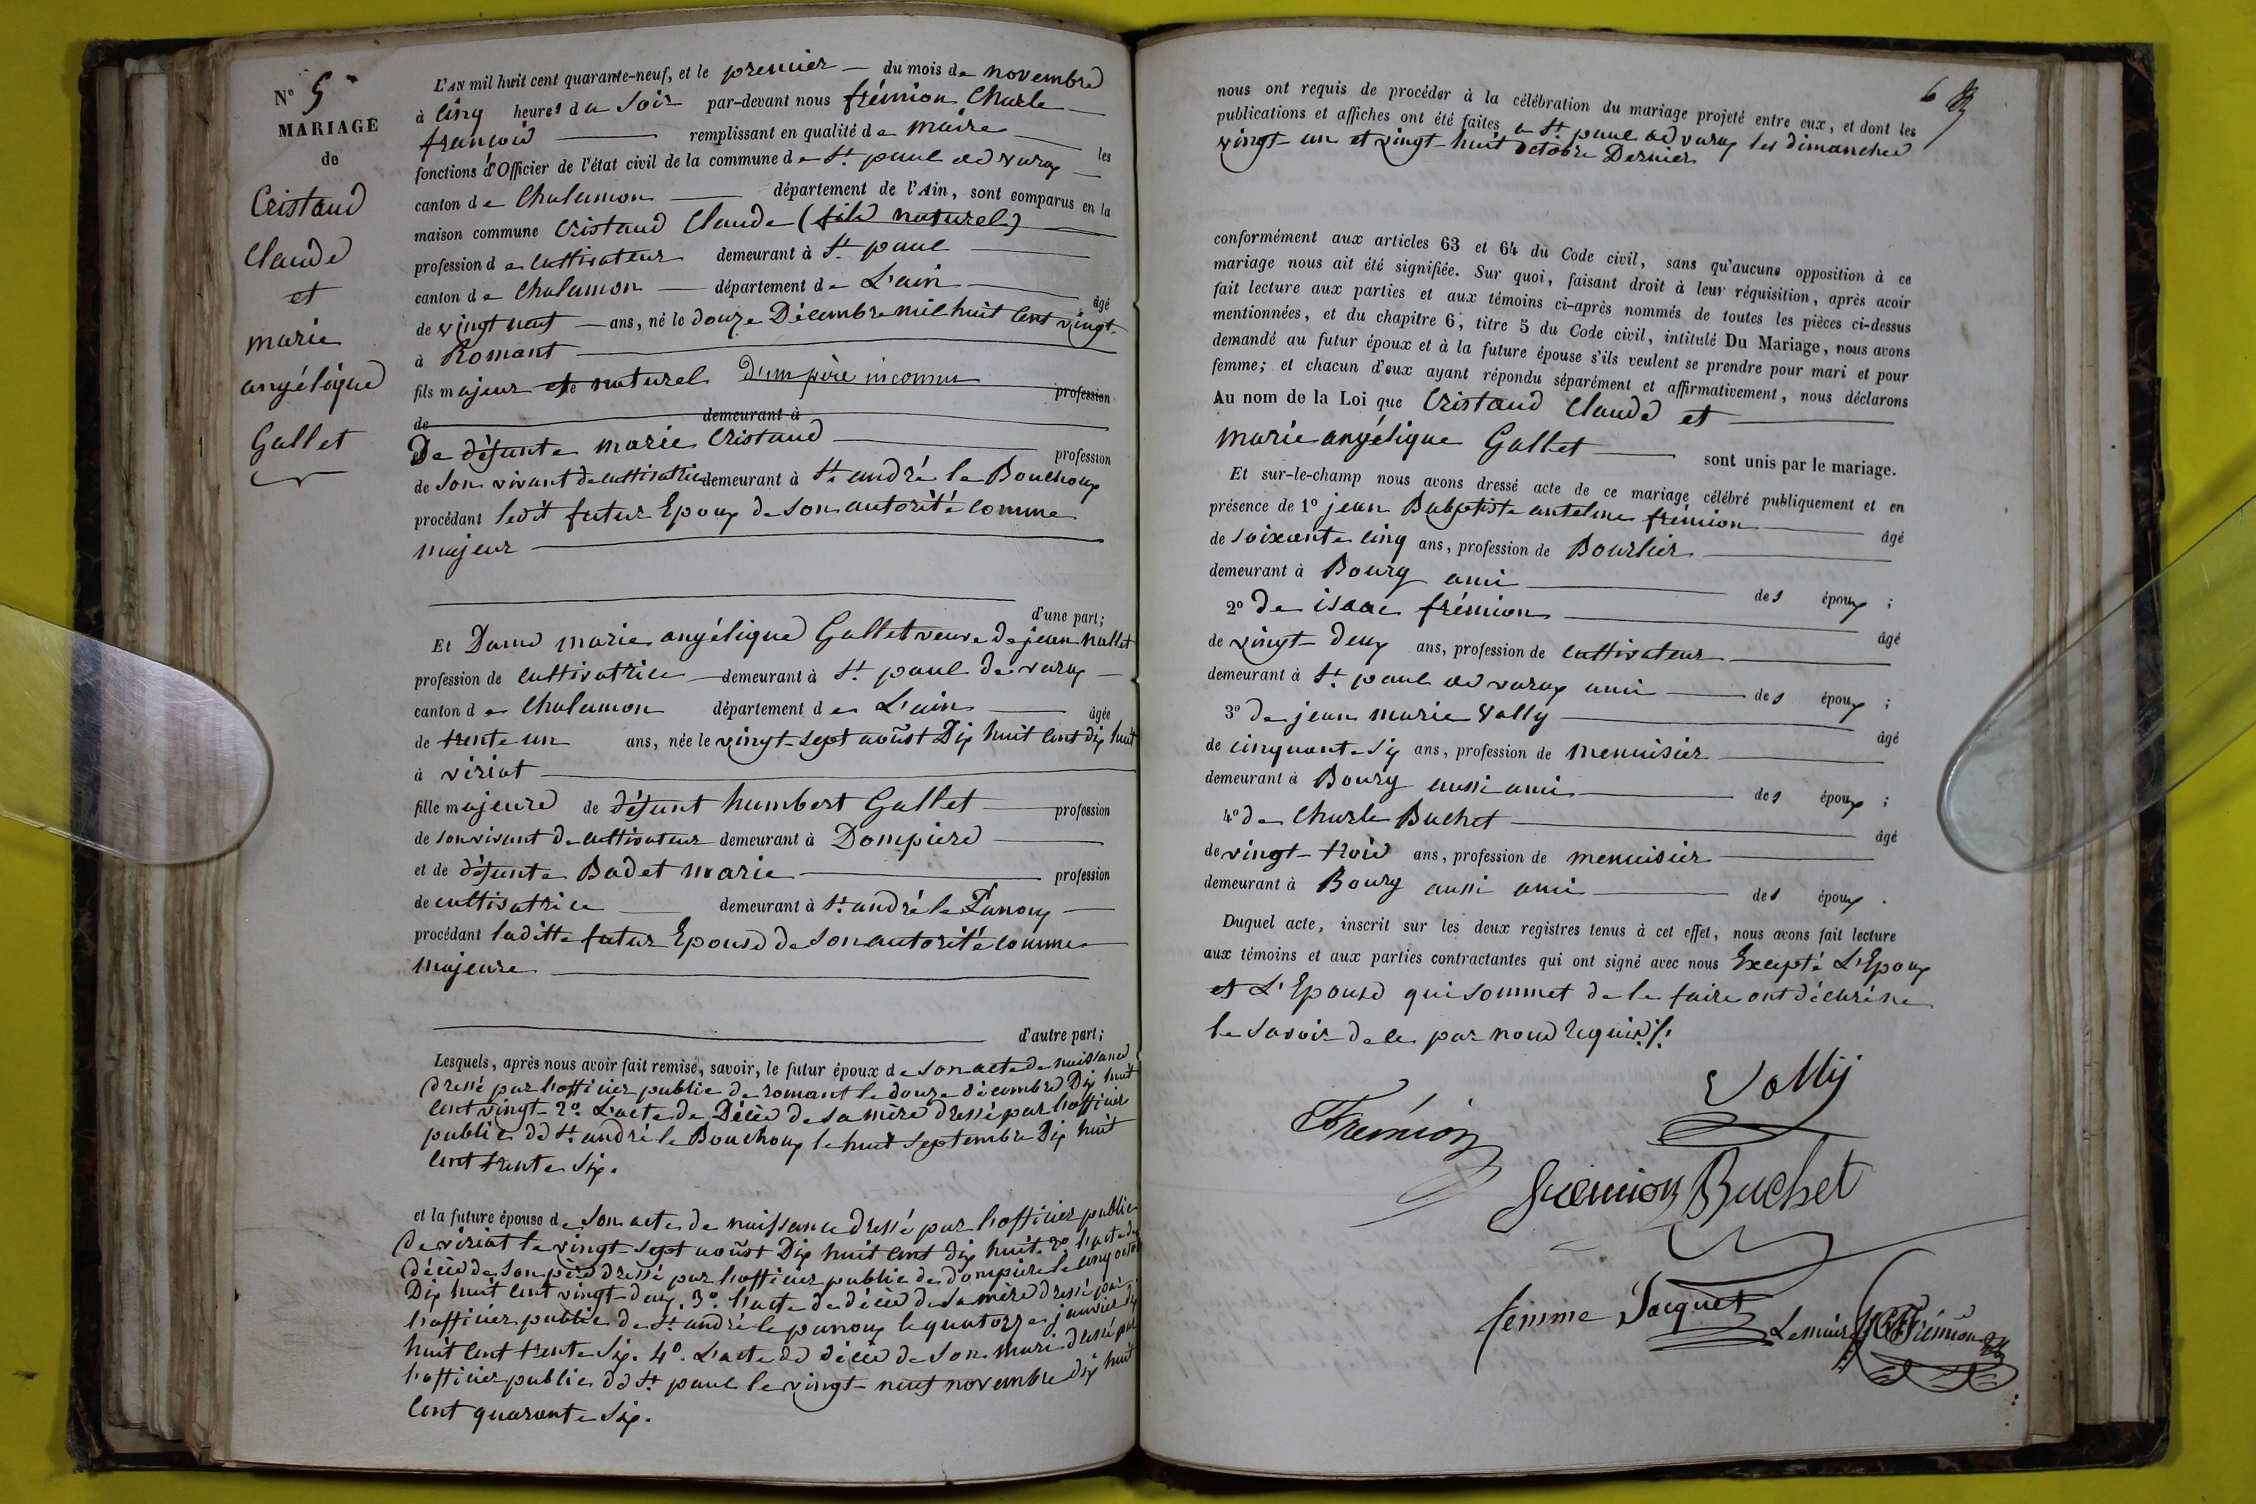 N° 5
MARIAGE
de
Cristaud
Claude
et
marie
angélique
Gallet
L'AN mil huit cent quarante-neuf, et le premier du mois de novembre
à cinq heures du Soir par-devant nous frémion Charle
françois remplissant en qualité de maire les
fonctions d'Officier de l'état civil de la commune de St. paul de varax
canton de Chalamon département de l'Ain, sont comparus en la
maison commune Cristaud Claude (fils naturel)
profession de Cultivateur demeurant à St. paul
canton de Chalamon département de L'ain âgé
de vingt neuf ans, né le douze Décembre mil huit Cent vingt
à Romant
fils majeur et naturel D'un père inconnu profession
de demeurant à
De défunte marie Cristaud profession
de Son vivant de cultivatrice demeurant à St. andré le Bouchoux
procédant ledit futur Epoux de Son autorité comme
majeur
d'une part;
Et Dame marie angélique Gallet veuve de jean nallet
profession de cultivatrice demeurant à St. paul de varax
canton de Chalamon département de L'ain âgée
de trente un ans, née le vingt-sept août Dix huit Cent dix huit
à viriat
fille majeure de défunt humbert Gallet profession
de son vivant de cultivateur demeurant à Dompiere
et de défunte Badet marie profession
de cultivatrice demeurant à St. andré le Panoux
procédant laditte futur Epouse de Son autorité comme
majeure
d'autre part;
Lesquels, après nous avoir fait remise, savoir, le futur époux de Son acte de naissance
dressé par l'officier public de romant le douze décembre Dix huit
Cent vingt 2°. L'acte de Décès de sa mère dressé par l'officier
public de St. andré le Bouchoux le huit Septembre Dix huit
Cent trente Six.
et la future épouse de Son acte de naissance dressé par l'officier public
de viriat le vingt-sept août Dix huit Cent dix huit. 2° l'acte de
décès de Son père dressé par l'officier public de dompiere le cinq octo
Dix huit Cent vingt-deux. 3°. l'acte de décès de Sa mère dressé par
l'officier public de St. andré le panoux le quatorze janvier dix
huit Cent trente Six. 4°. L'acte de décès de Son mari dressé par
l'officier public de St. paul le vingt-neuf novembre dix huit
Cent quarante Six.
6
nous ont requis de procéder à la célébration du mariage projeté entre eux, et dont les
publications et affiches ont été faites a St. paul de varax les dimanches
vingt-un et vingt-huit octobre Dernier
conformément aux articles 63 et 64 du Code civil, sans qu'aucune opposition à ce
mariage nous ait été signifiée. Sur quoi, faisant droit à leur réquisition, après avoir
fait lecture aux parties et aux témoins ci-après nommés de toutes les pièces ci-dessus
mentionnées, et du chapitre 6, titre 5 du Code civil, intitulé Du Mariage, nous avons
demandé au futur époux et à la future épouse s'ils veulent se prendre pour mari et pour
femme; et chacun d'eux ayant répondu séparément et affirmativement, nous déclarons
Au nom de la Loi que Cristaud Claude et
marie angélique Gallet sont unis par le mariage.
Et sur-le-champ nous avons dressé acte de ce mariage célébré publiquement et en
présence de 1° jean Babptiste antelme frémion âgé
de Soixante cinq ans, profession de Bourlier
demeurant à Bourg ami des époux ;
2° de isaac frémion âgé
de vingt-deux ans, profession de cultivateur
demeurant à St. paul de varax ami des époux ;
3° de jean marie Vally âgé
de cinquante Six ans, profession de menuisier
demeurant à Bourg aussi ami des époux ;
4° de Charle Buchet âgé
de vingt-trois ans, profession de menuisier
demeurant à Bourg aussi ami des époux .
Duquel acte, inscrit sur les deux registres tenus à cet effet, nous avons fait lecture
aux témoins et aux parties contractantes qui ont signé avec nous Excepté L'Epoux
et L'Epouse qui sommet de le faire ont déclaré ne
le Savoir de ce par nous requis./.
Vally
Frémion
frémion Buchet
femme Jacquet
Le maire Frémion